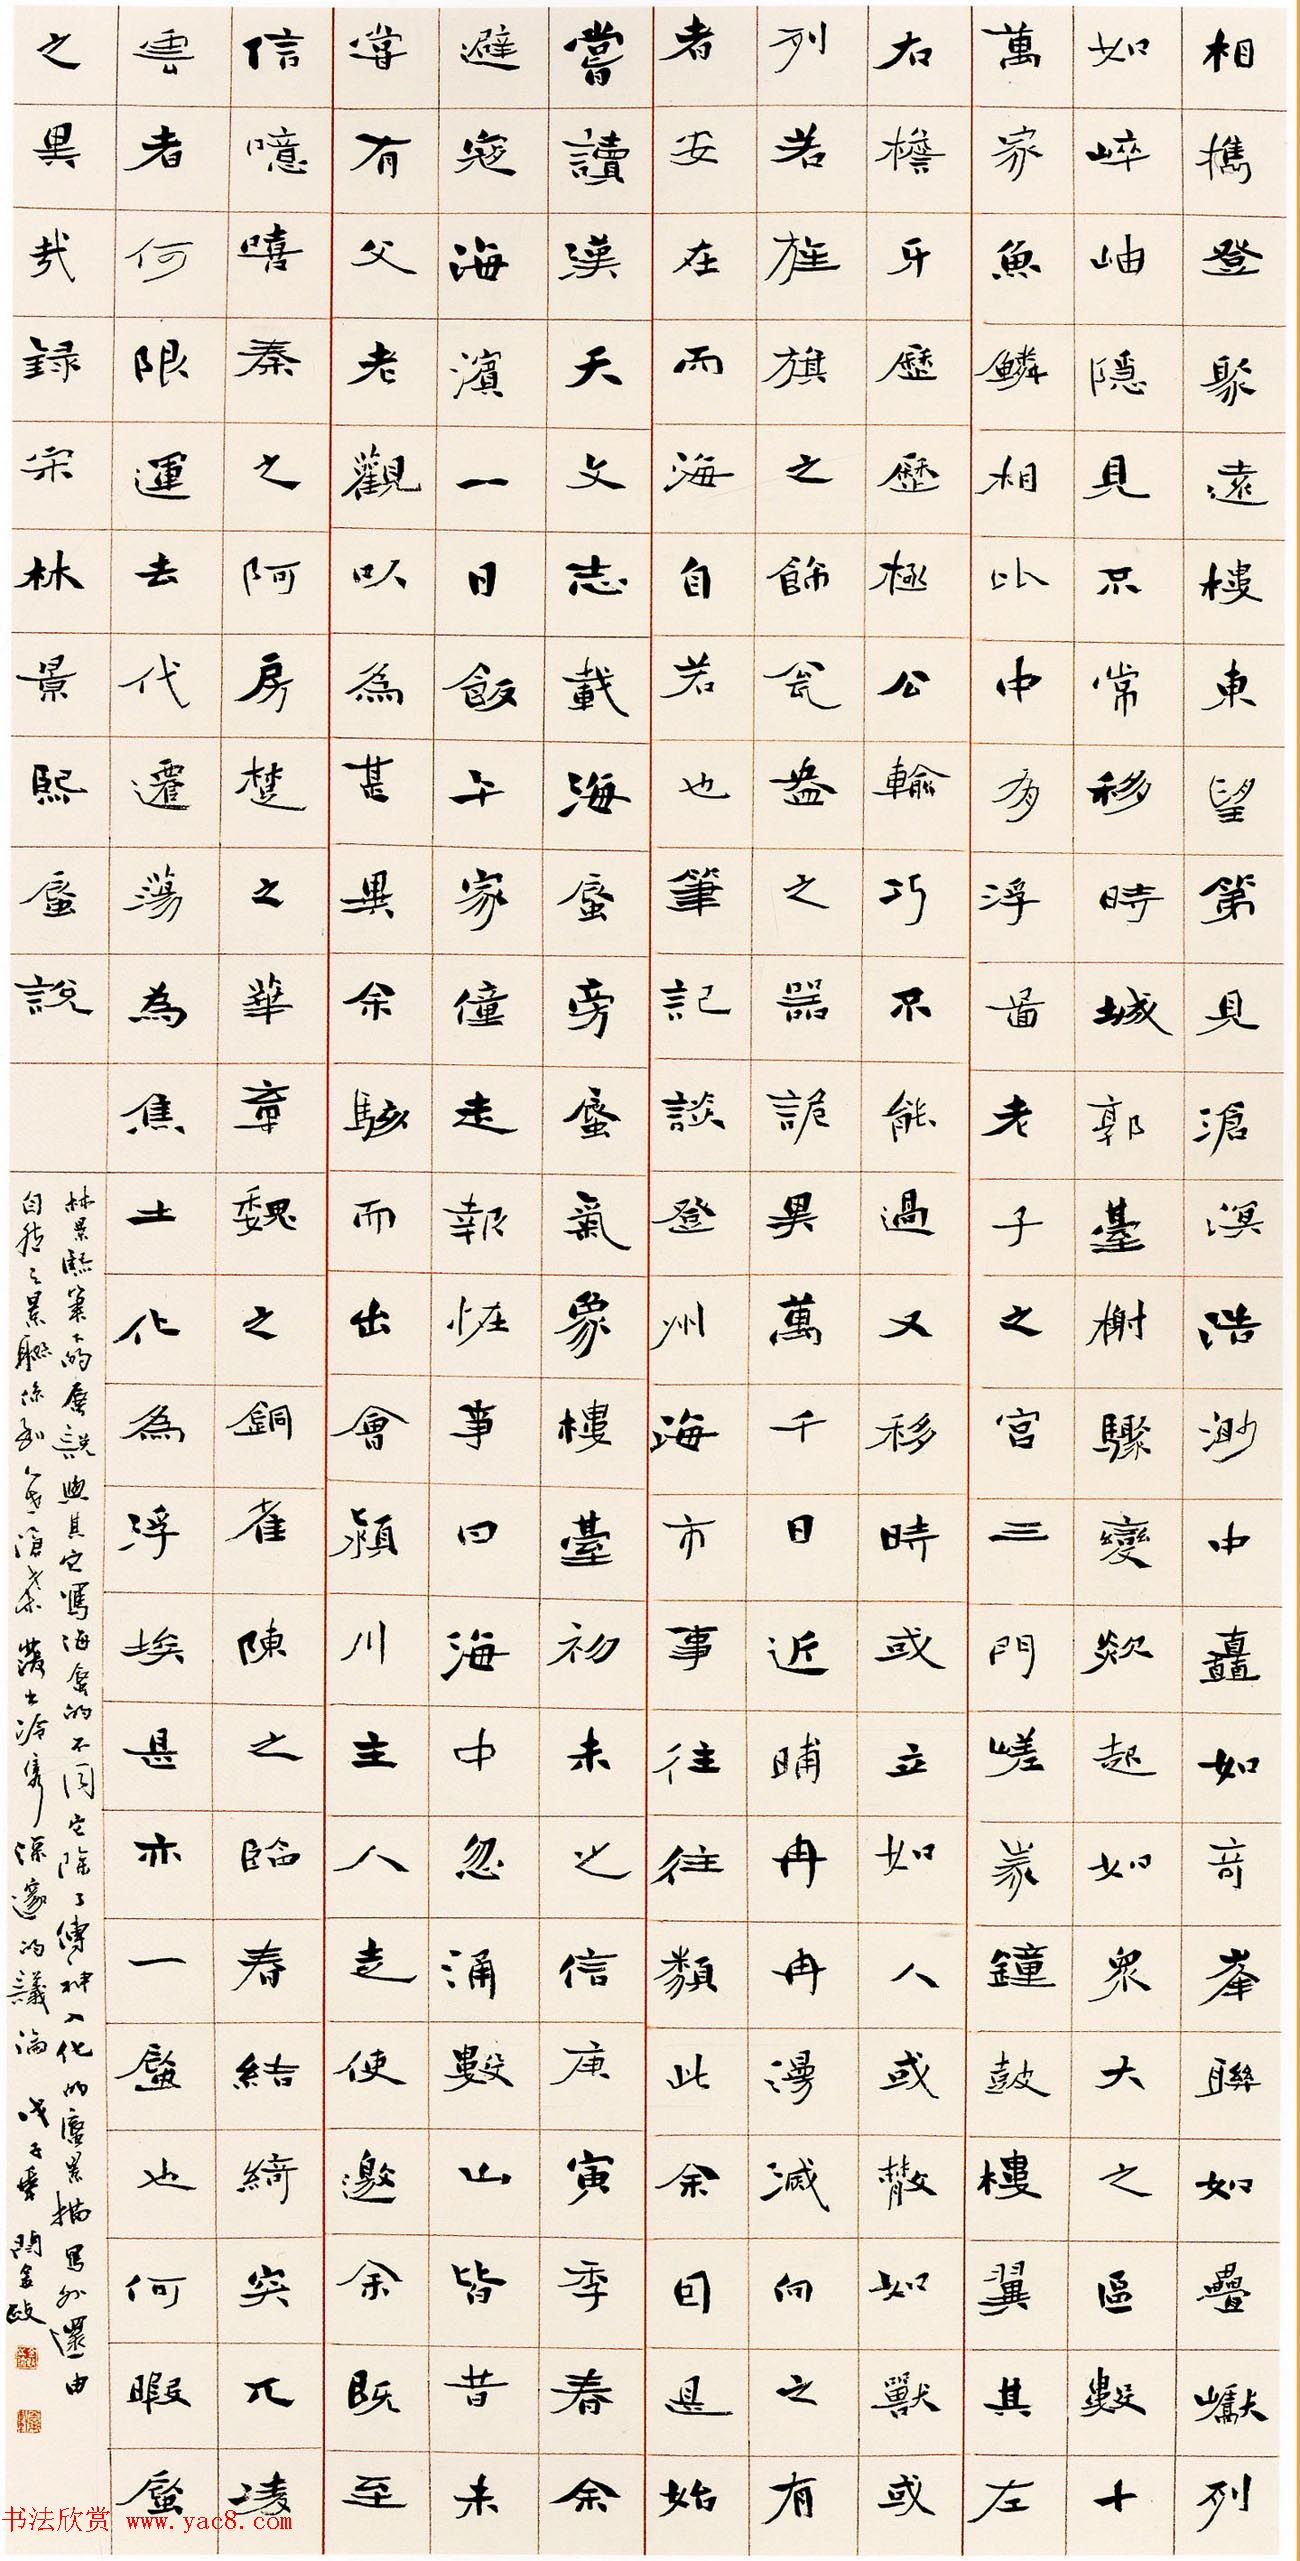 相攜登聚遠樓東望第見滄溟浩渺中矗如奇峯聯如疊巘列
如崒岫隱見不常移時城郭臺榭驟變欻起如眾大之區數十
萬家魚鱗相比中有浮圖老子之宮三門嵯峩鐘鼓樓翼其左
右檐牙歷歷極公輸巧不能過又移時或立如人或散如獸或
列若旌旗之飾瓮盎之器詭異萬千日近晡冉冉漫滅向之有
者安在而海自若也筆記談登州海市事往往類此余因是始
嘗讀漢天文志載海旁蜃氣象樓臺初未之信庚寅季春余
避寇海濱一日飯午家僮走報怪事曰海中忽涌數山皆昔未
嘗有父老觀以為甚異余駭而出會潁川主人走使邀余既至
信噫嘻秦之阿房楚之華章魏之銅雀陳之臨春結綺突兀凌
雲者何限運去代遷蕩為焦土化為浮埃是亦一蜃也何暇蜃
之異哉錄宋林景熙蜃說
林景熙筆下的蜃說與其它寫海蜃的不同它除了傳神入化的蜃景描寫外還由
自然之景聯係到人世滄桑發出冷雋深邃的議論 戊子
书法欣赏 www.yac8.com